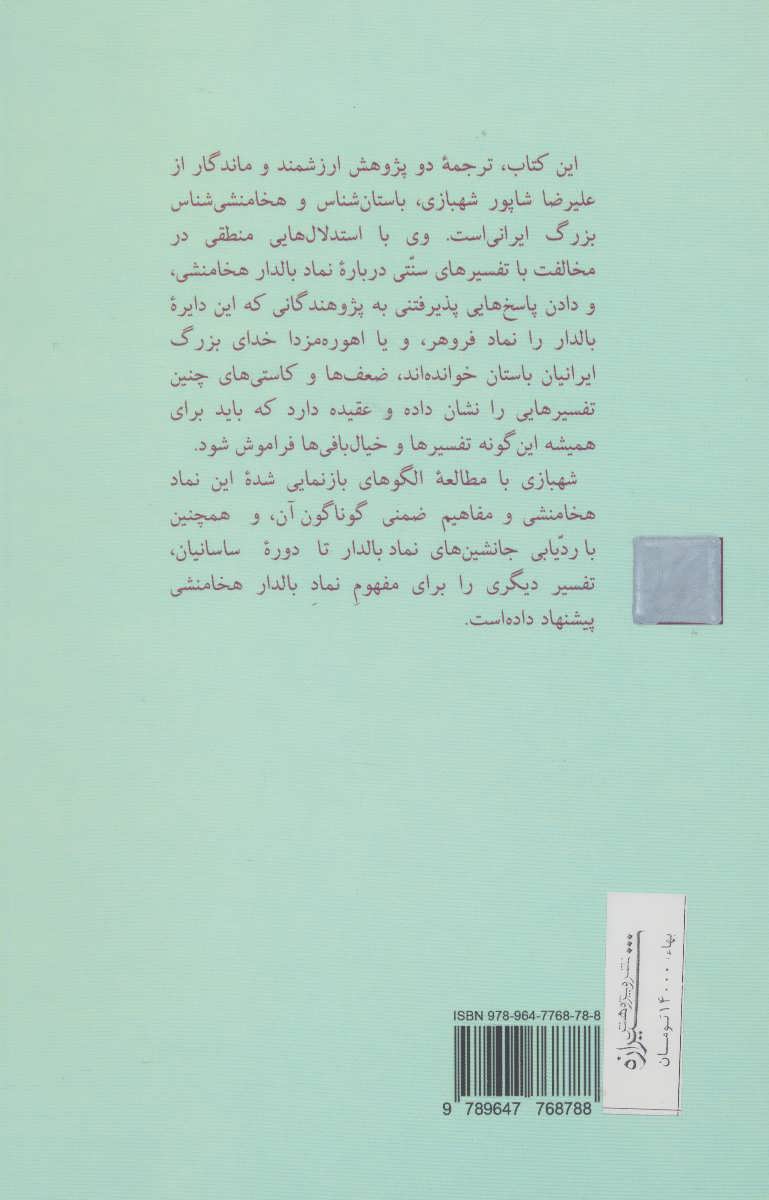 این کتاب، ترجمهٔ دو پژوهش ارزشمند و ماندگار از
علیرضا شاپور شهبازی، باستان‌شناس و هخامنشی‌شناس
بزرگ ایرانی‌است. وی با استدلال‌هایی منطقی در
مخالفت با تفسیرهای سنّتی دربارهٔ نماد بالدار هخامنشی،
و دادن پاسخ‌هایی پذیرفتنی به پژوهندگانی که این دایرهٔ
بالدار را نماد فروهر، و یا اهوره‌مزدا خدای بزرگ
ایرانیان باستان خوانده‌اند، ضعف‌ها و کاستی‌های چنین
تفسیرهایی را نشان داده و عقیده دارد که باید برای
همیشه این‌گونه تفسیرها و خیال‌بافی‌ها فراموش شود.
شهبازی با مطالعهٔ الگوهای بازنمایی شدهٔ این نماد
هخامنشی و مفاهیم ضمنی گوناگون آن، و همچنین
با ردّیابی جانشین‌های نماد بالدار تا دورهٔ ساسانیان،
تفسیر دیگری را برای مفهومِ نمادِ بالدار هخامنشی
پیشنهاد داده‌است.
نشر و پژوهش
شیرازه
بهاء: ۱۴۰۰۰ تومان
ISBN 978-964-7768-78-8
9 789647 768788